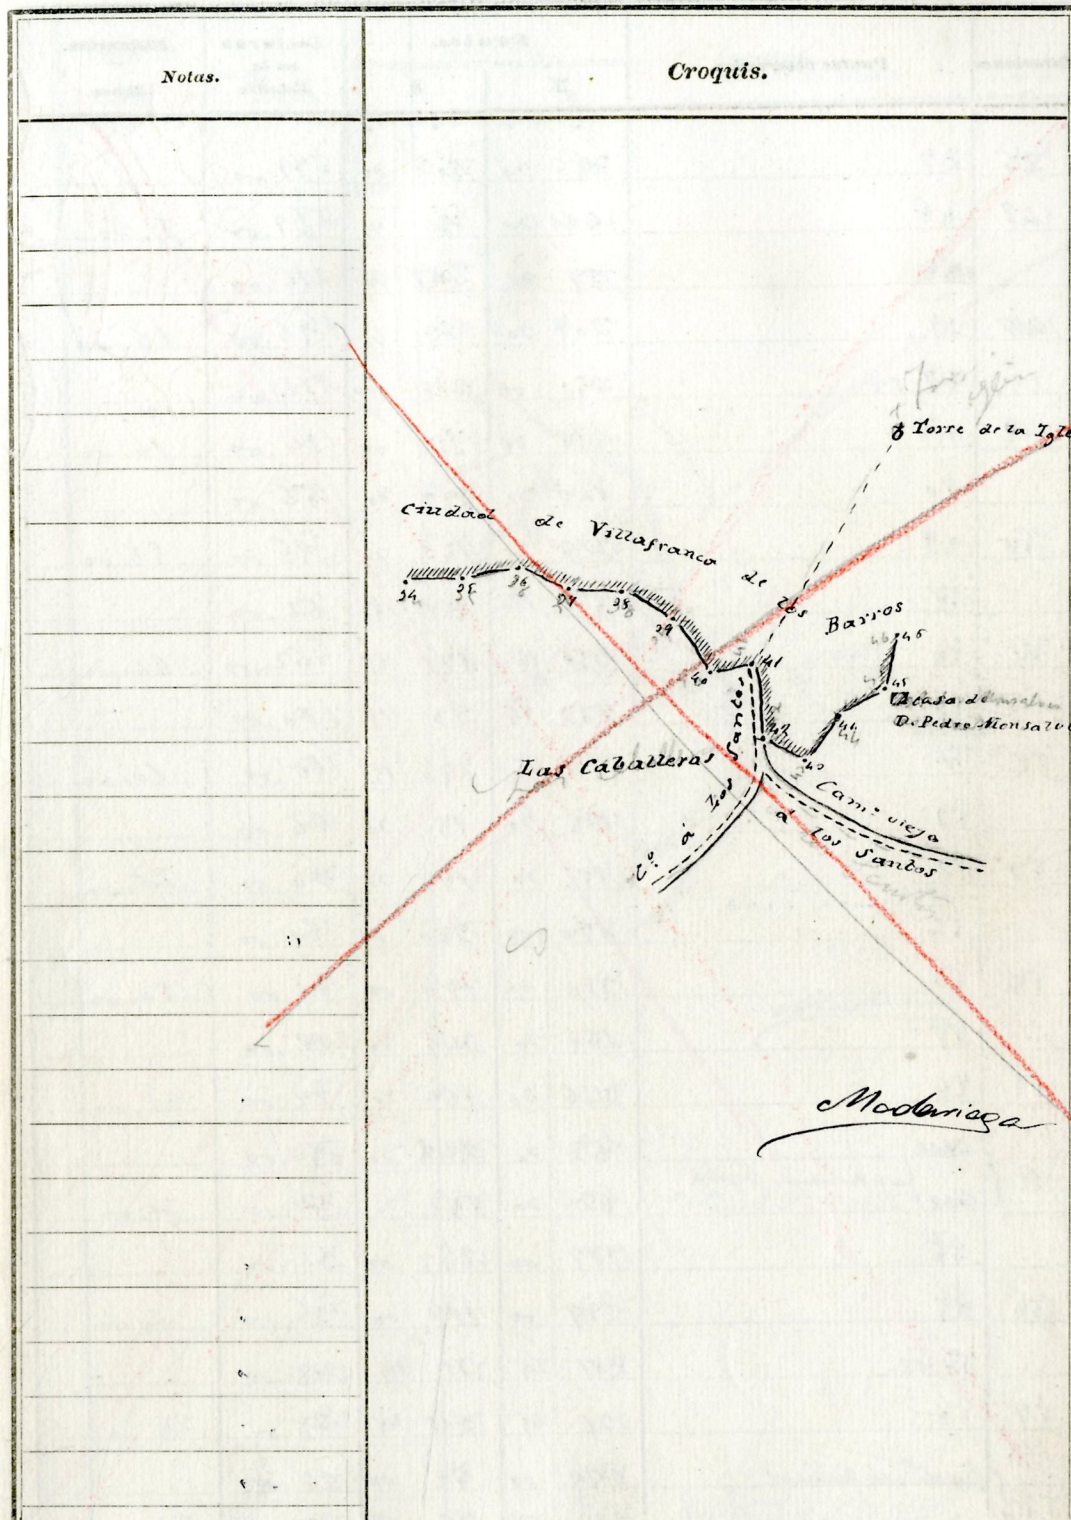 Notas.
Croquis.
Torre de la Igle
Ciudad de Villafranca de los Barros
34
35
36
37
38
39
40
41
42
43
44
45
46
Casa de
D. Pedro Monsalve
Las Caballeras
Co. á Los Santos
Cam.o viejo
á los Santos
Madariaga